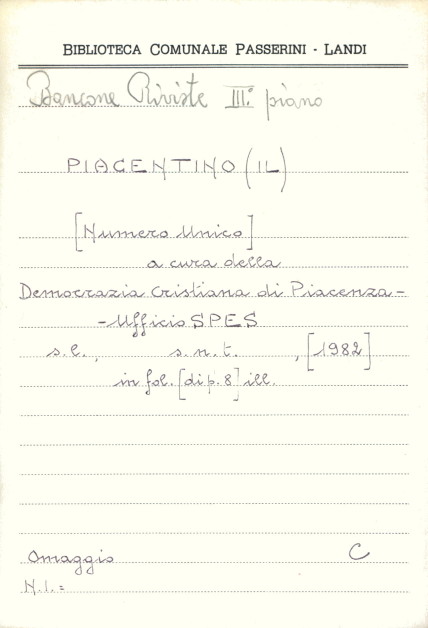 BIBLIOTECA COMUNALE PASSERINI - LANDI
Bancone Riviste III.° piano
PIACENTINO (IL)
[Numero Unico]
a cura della
Democrazia Cristiana di Piacenza -
- Ufficio SPES
s.l., s.n.t., [1982]
in fol. [di p. 8] ill.
Omaggio C
N.I. =